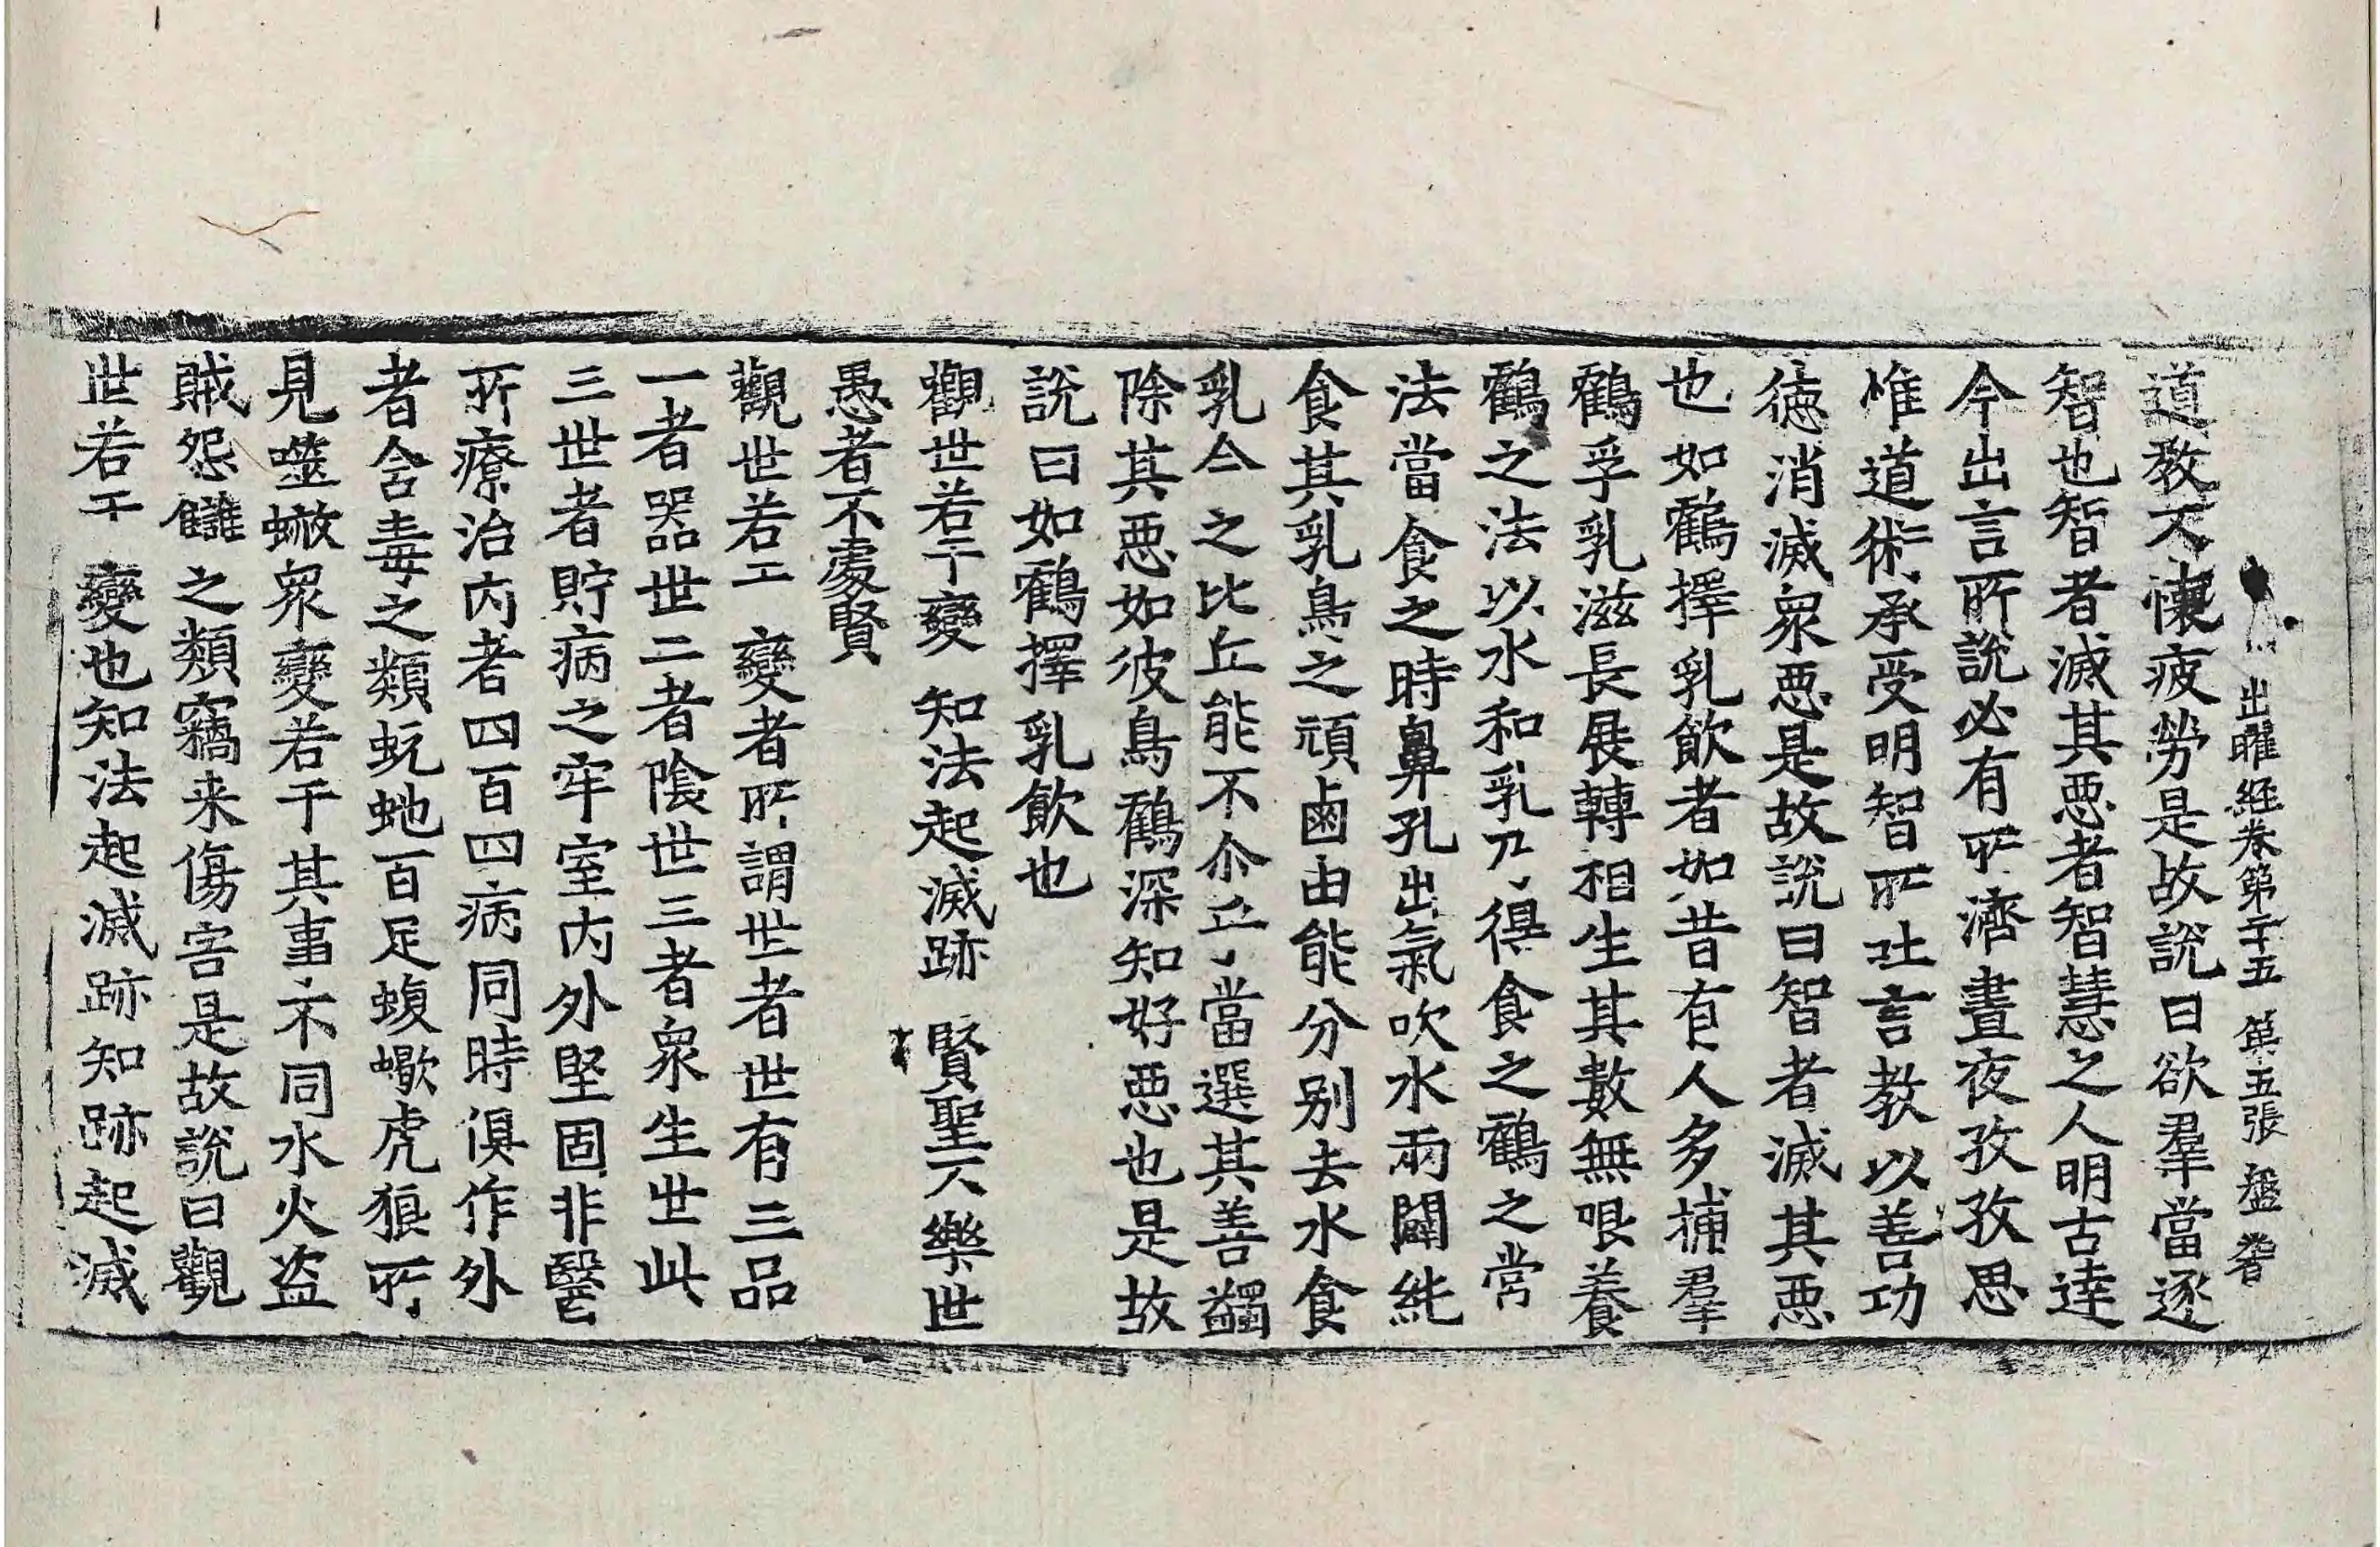 出曜經卷第二十五 第五張 盤
道教不懷疲勞是故說曰欲羣當逐
智也智者滅其惡者智慧之人明古達
今出言所說必有所濟晝夜孜孜思
惟道術承受明智所吐言教以善功
徳消滅衆惡是故說曰智者滅其惡
也如鶴擇乳飲者如昔有人多捕羣
鶴孚乳滋長展轉相生其數無限養
鶴之法以水和乳乃得食之鶴之常
法當食之時鼻孔出氣吹水兩闢純
食其乳鳥之頑鹵由能分別去水食
乳今之比丘能不尒乎當選其善蠲
除其惡如彼鳥鶴深知好惡也是故
說曰如鶴擇乳飲也
觀世若干變 知法起滅跡 賢聖不樂世
愚者不處賢
觀世若干變者所謂世者世有三品
一者器世二者陰世三者衆生世此
三世者貯病之牢室内外堅固非醫
所療治内者四百四病同時俱作外
者含毒之類蚖虵百足蝮蠍虎狼所
見噬螫衆變若干其事不同水火盗
賊怨讎之類竊来傷害是故說曰觀
世若干變也知法起滅跡知跡起滅